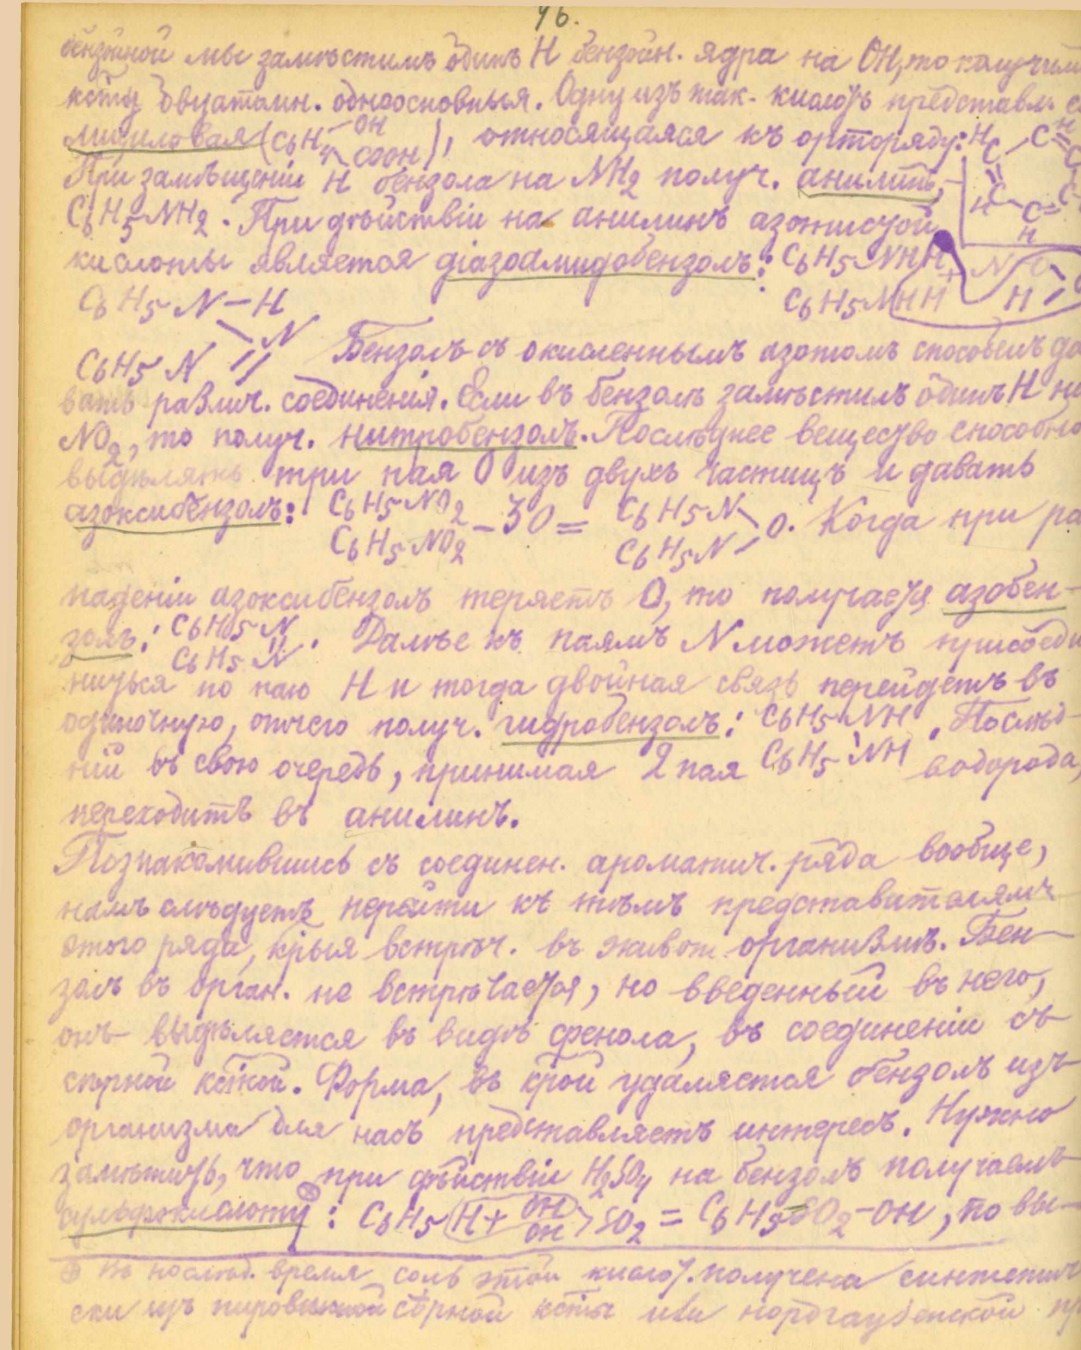 46.
бензойной мы замѣстимъ одинъ H бензойн. ядра на OH, то получимъ
к-ты двуатомн. одноосновныя. Одну изъ так. кислотъ представл.
лициловая (C6H4 – OH COOH), относящаяся къ орторяду:
При замѣщеніи H бензола на NH2 получ. анилинъ,
C6H5NH2. При дѣйствіи на анилинъ азотистой
кислоты является діазоамидобензолъ: C6H5NHH
C6H5NHH
C6H5N–H
N
C6H5N Бензолъ съ окисленнымъ азотомъ способенъ да
вать различ. соединенія. Если въ бензолѣ замѣстить одинъ H на
NO2, то получ. нитробензолъ. Послѣднее вещество способно
выдѣлять три пая O изъ двухъ частицъ и давать
азоксибензолъ: C6H5NO2 C6H5NO2 – 3O = C6H5N C6H5N O. Когда при ра
паденіи азоксибензолъ теряетъ O, то получается азобен-
золъ: C6H5N C6H5N. Далѣе къ паямъ N можетъ присоеди
ниться по паю H и тогда двойная связь перейдетъ въ
одиночную, отчего получ. гидробензолъ: C6H5NH C6H5NH. Послѣд-
ній въ свою очередь, принимая 2 пая водорода,
переходитъ въ анилинъ.
Познакомившись съ соединен. ароматич. ряда вообще,
намъ слѣдуетъ перейти къ тѣмъ представителямъ
этого ряда, к-рыя встрѣч. въ живот. организмѣ. Бен-
золъ въ орган. не встрѣчается, но введенный въ него,
онъ выдѣляется въ видѣ фенола, въ соединеніи съ
сѣрной к-той. Форма, въ к-рой удаляется бензолъ изъ
организма для насъ представляетъ интересъ. Нужно
замѣтить, что при дѣйствіи H2SO4 на бензолъ получаемъ
сульфокислоту: C6H5 H + OH OH SO2 = C6H5–SO2–OH, по вы-
Въ послѣд. время соль этой кислот. получена синтетиче
ски изъ сѣрной к-ты или нордгаузенской